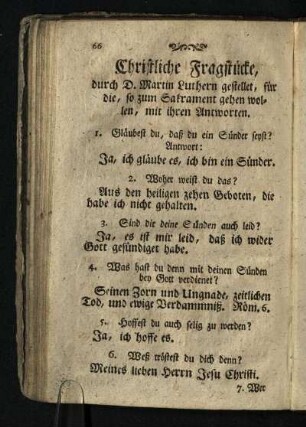 66
Christliche Fragstücke,
durch D. Martin Luthern gestellet, für
die, so zum Sakrament gehen wol-
len, mit ihren Antworten.
1. Gläubest du, daß du ein Sünder seyst?
Antwort:
Ja, ich gläube es, ich bin ein Sünder.
2. Woher weist du das?
Aus den heiligen zehen Geboten, die
habe ich nicht gehalten.
3. Sind dir deine Sünden auch leid?
Ja, es ist mir leid, daß ich wider
Gott gesündiget habe.
4. Was hast du denn mit deinen Sünden
bey Gott verdienet?
Seinen Zorn und Ungnade, zeitlichen
Tod, und ewige Verdammniß. Röm. 6.
5. Hoffest du auch selig zu werden?
Ja, ich hoffe es.
6. Weß tröstest du dich denn?
Meines lieben Herrn Jesu Christi.
7. Wer